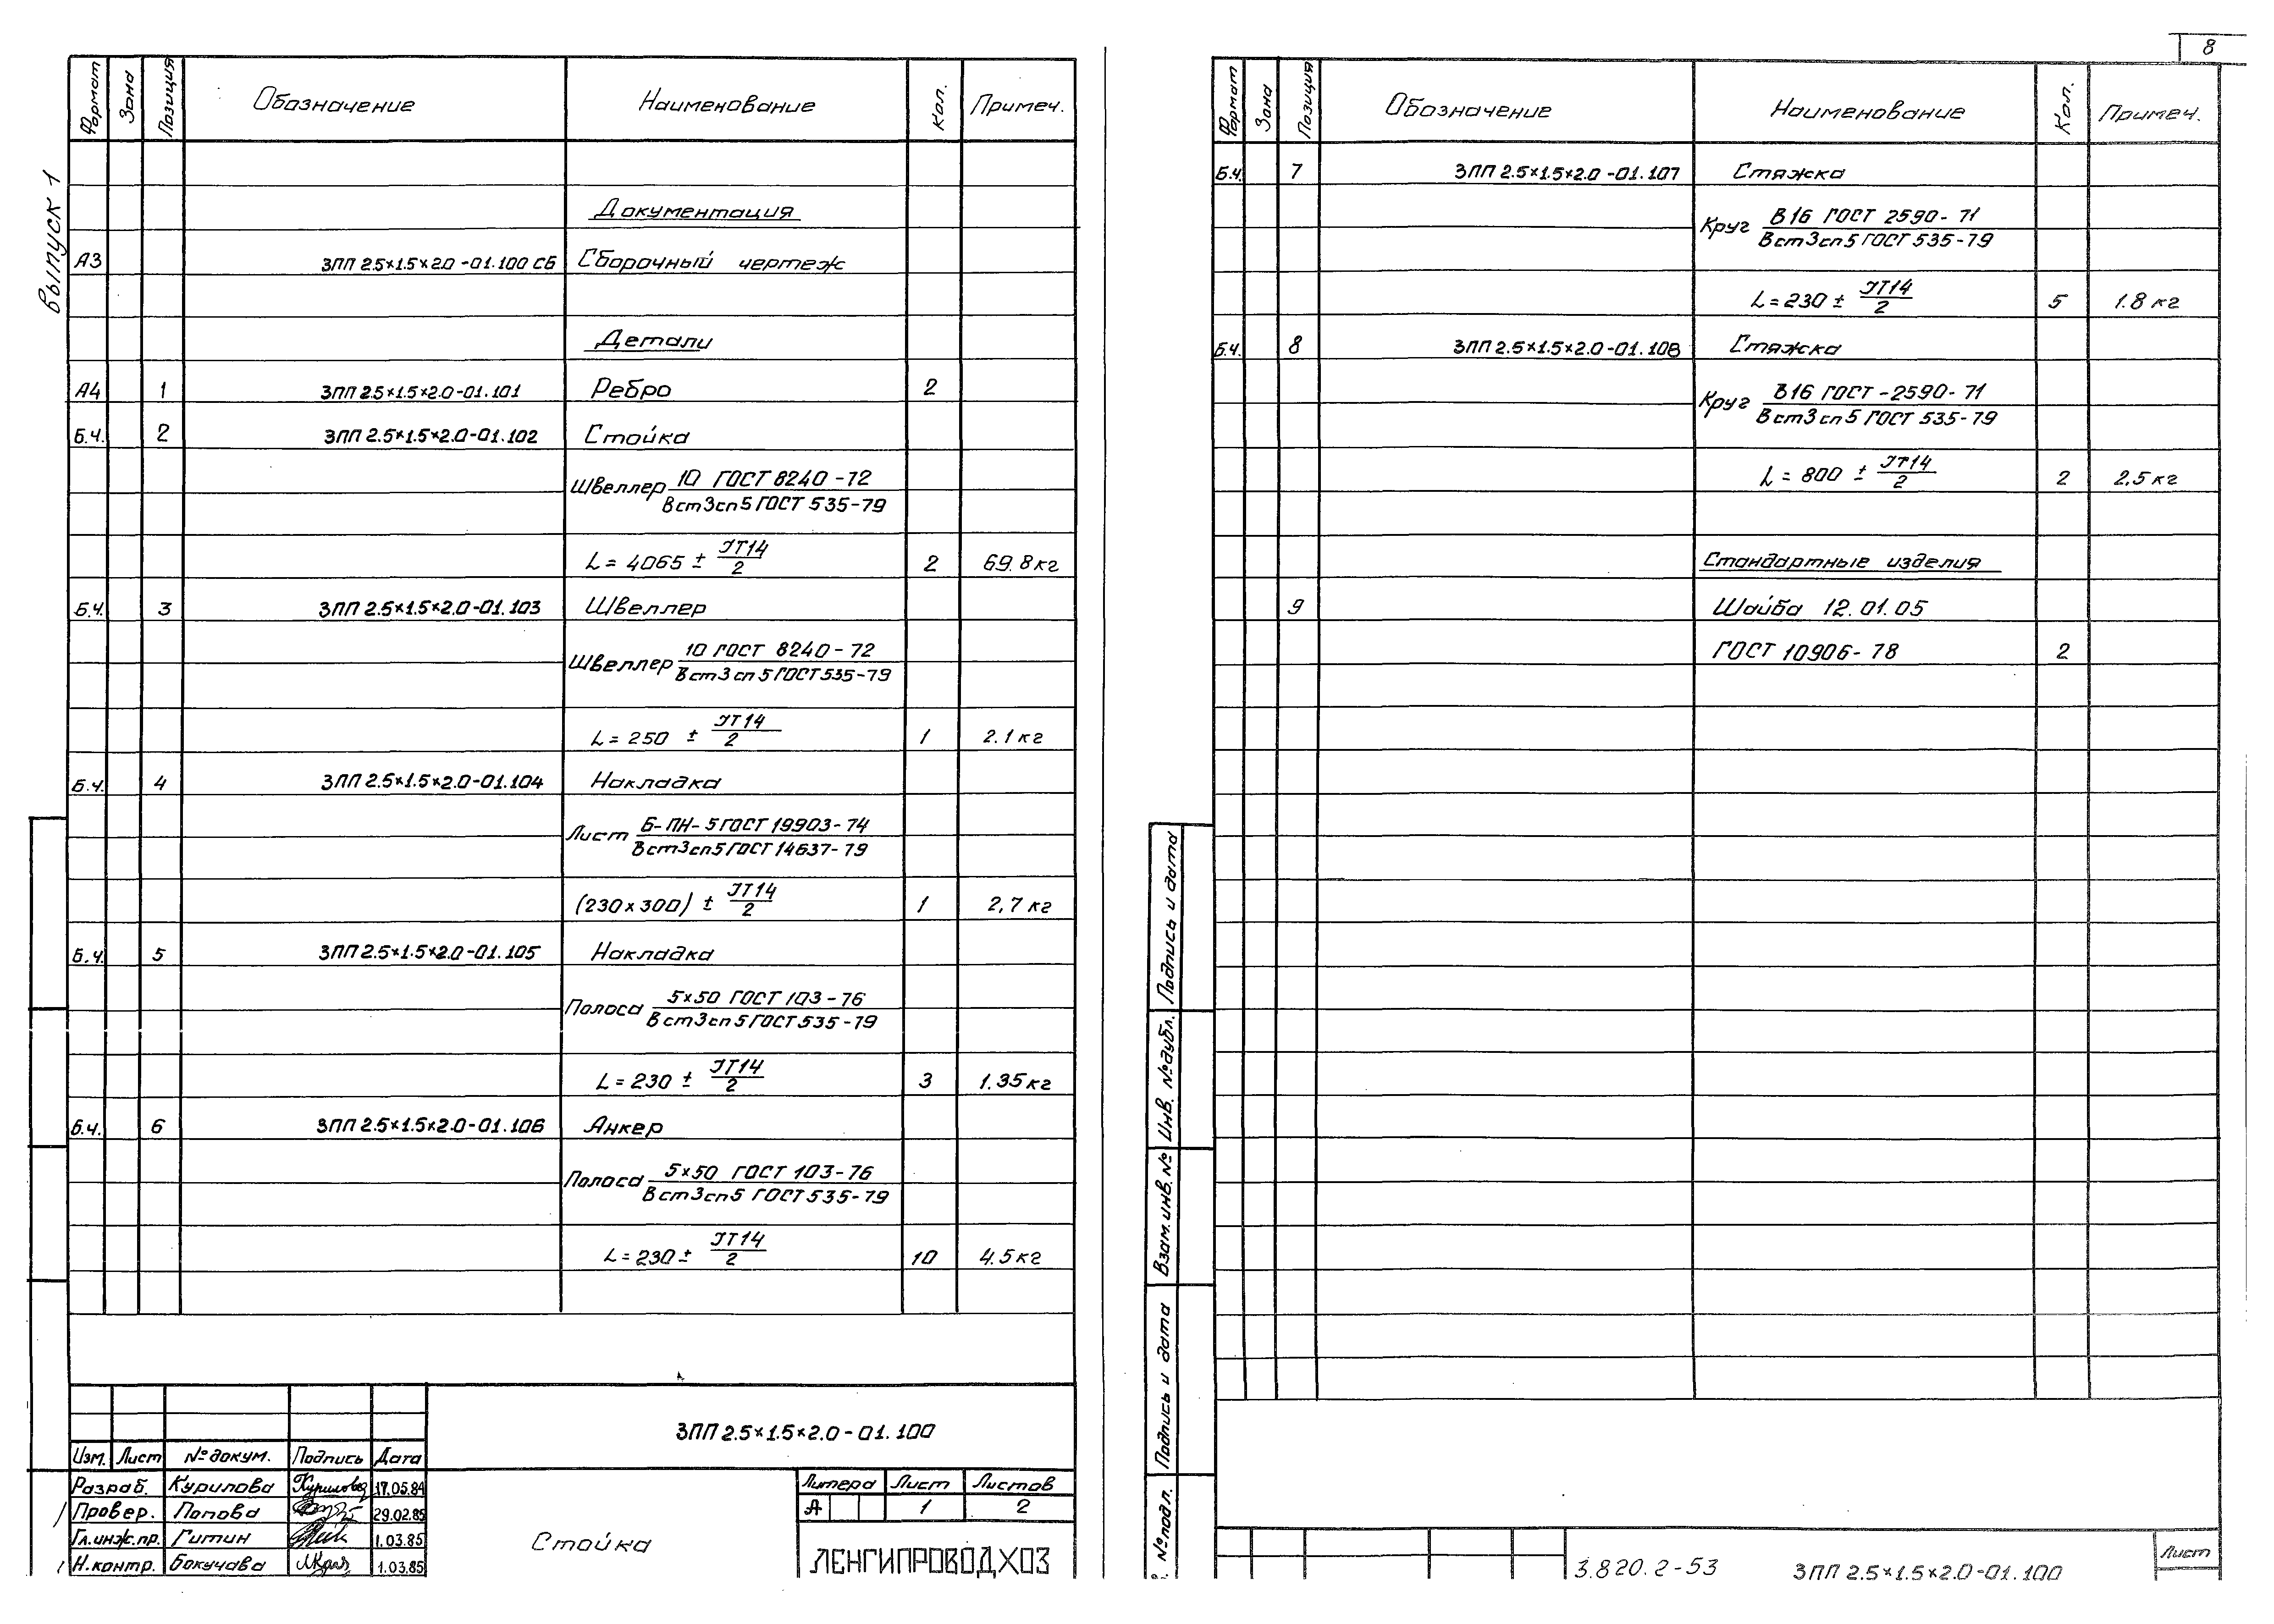 Выпуск 1
Формат Зона Позиция Обозначение Наименование Кол. Примеч.
Документация
А3 ЗПП 2.5×1.5×2.0-01.100 СБ Сборочный чертеж
Детали
А4 1 ЗПП 2.5×1.5×2.0-01.101 Ребро 2
Б.ч. 2 ЗПП 2.5×1.5×2.0-01.102 Стойка
Швеллер 10 ГОСТ 8240-72
Вст3сп5 ГОСТ 535-79
L = 4065 ± JT14/2 2 69.8 кг
Б.ч. 3 ЗПП 2.5×1.5×2.0-01.103 Швеллер
Швеллер 10 ГОСТ 8240-72
Вст3сп5 ГОСТ 535-79
L = 250 ± JT14/2 1 2.1 кг
Б.ч. 4 ЗПП 2.5×1.5×2.0-01.104 Накладка
Лист Б-ПН-5 ГОСТ 19903-74
Вст3сп5 ГОСТ 14637-79
(230×300) ± JT14/2 1 2,7 кг
Б.ч. 5 ЗПП 2.5×1.5×2.0-01.105 Накладка
Полоса 5×50 ГОСТ 103-76
Вст3сп5 ГОСТ 535-79
L = 230 ± JT14/2 3 1.35 кг
Б.ч. 6 ЗПП 2.5×1.5×2.0-01.106 Анкер
Полоса 5×50 ГОСТ 103-76
Вст3сп5 ГОСТ 535-79
L = 230 ± JT14/2 10 4.5 кг
ЗПП 2.5×1.5×2.0-01.100
Изм. Лист № докум. Подпись Дата
Разраб. Курилова Курилова 17.05.84
Провер. Попова 29.02.85
Гл.инж.пр. Гитин 1.03.85
Н.контр. Бокучава 1.03.85
Стойка
Литера Лист Листов
А 1 2
ЛЕНГИПРОВОДХОЗ
8
Формат Зона Позиция Обозначение Наименование Кол. Примеч.
Б.ч. 7 ЗПП 2.5×1.5×2.0-01.107 Стяжка
Круг В16 ГОСТ 2590-71
Вст3сп5 ГОСТ 535-79
L = 230 ± JT14/2 5 1.8 кг
Б.ч. 8 ЗПП 2.5×1.5×2.0-01.108 Стяжка
Круг В16 ГОСТ-2590-71
Вст3сп5 ГОСТ 535-79
L = 800 ± JT14/2 2 2.5 кг
Стандартные изделия
9 Шайба 12.01.05
ГОСТ 10906-78 2
Подпись и дата
Инв. № дубл.
Взам.инв.№
Подпись и дата
№ подл.
3.820.2-53 ЗПП 2.5×1.5×2.0-01.100
Лист